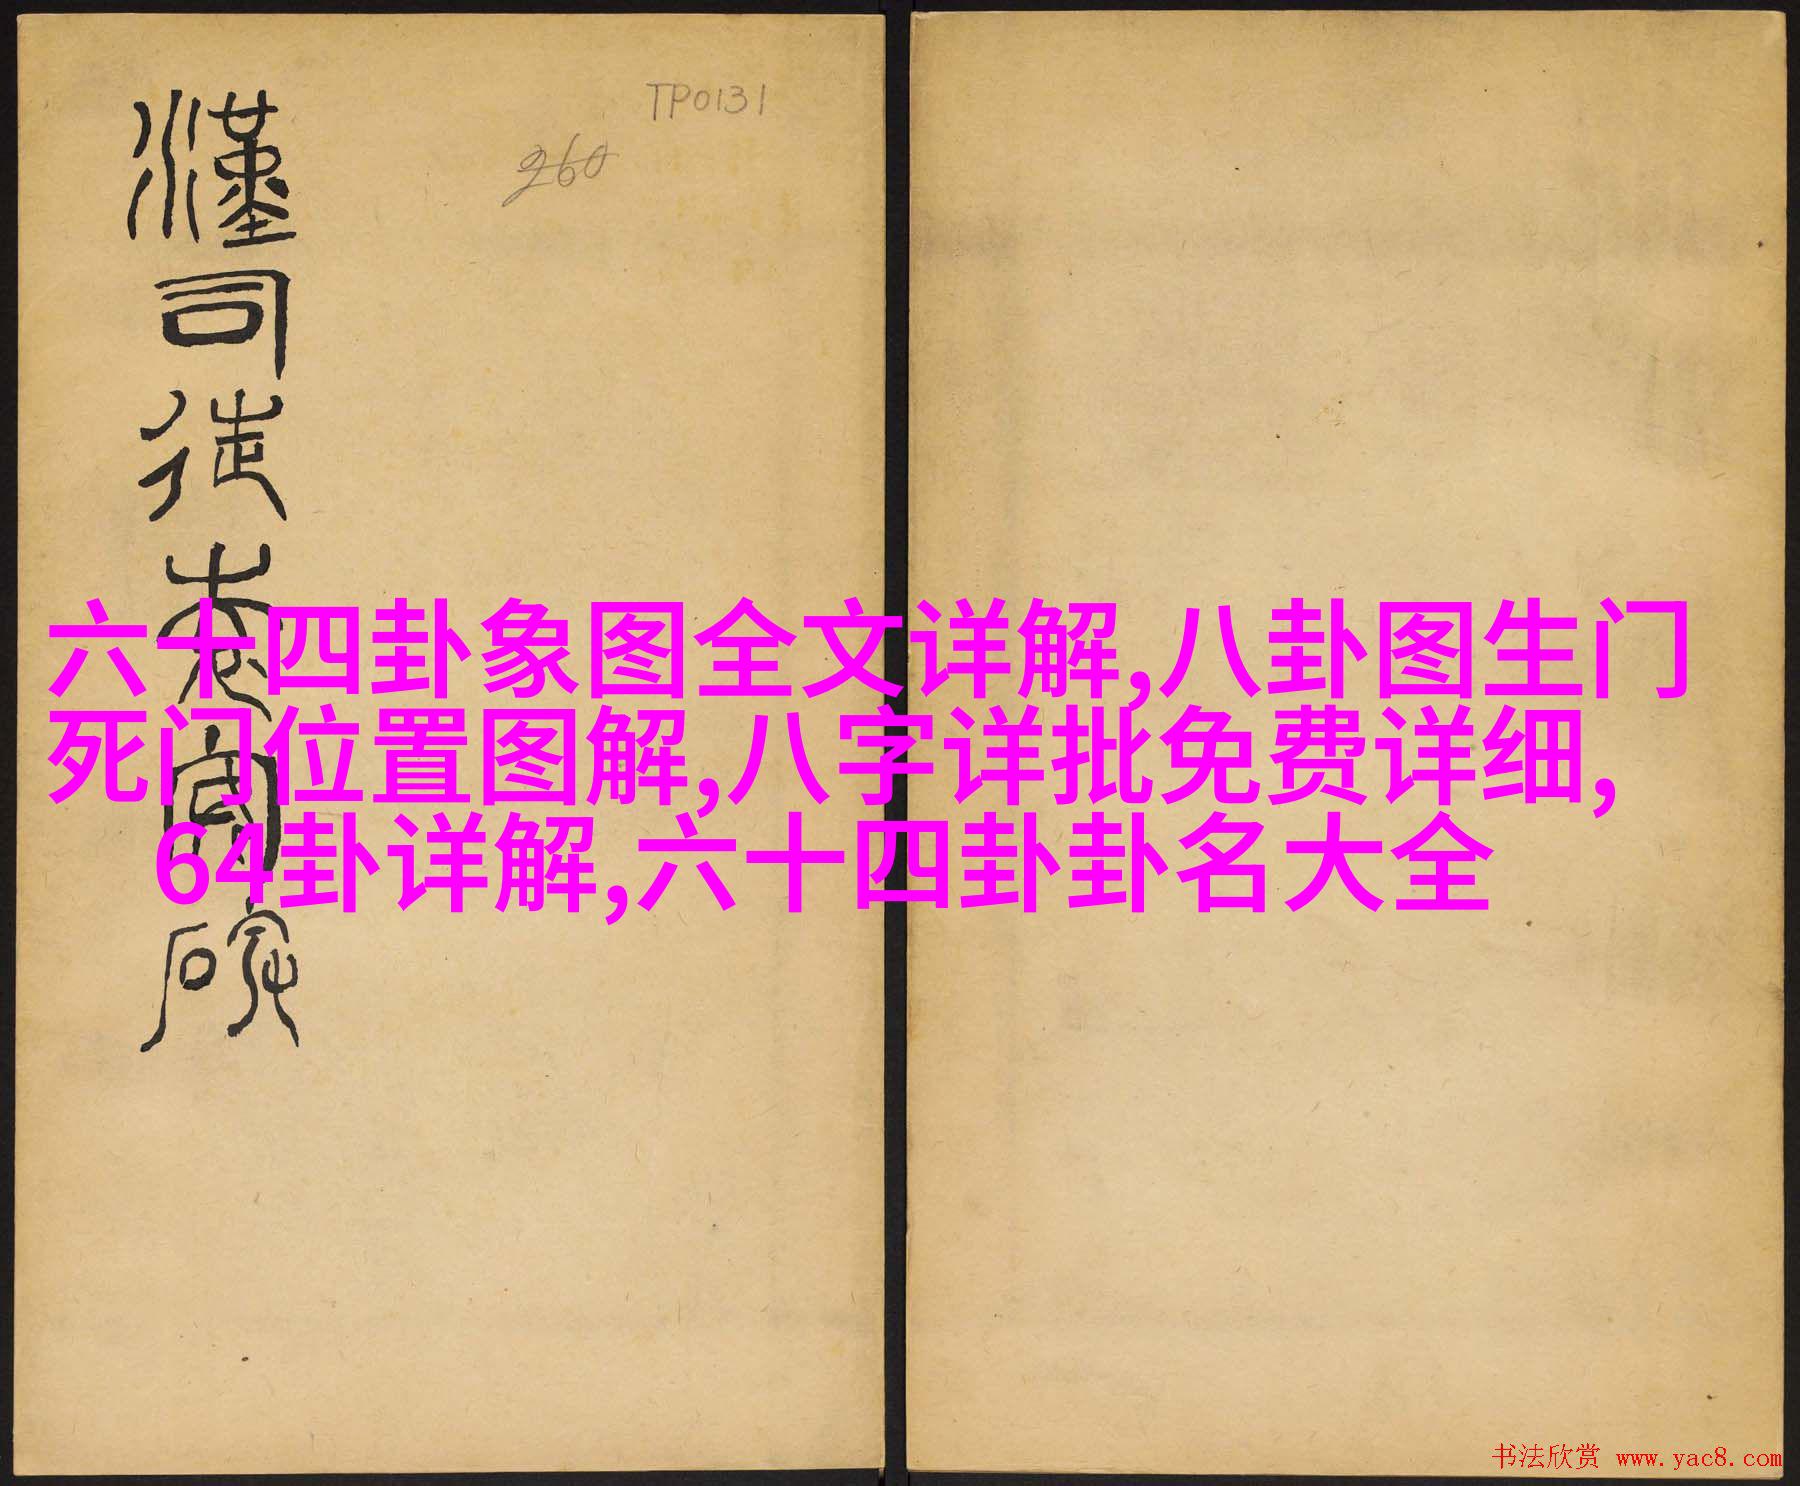 TP0131
260
漢司徒袁安碑
六十四卦象图全文详解,八卦图生门
死门位置图解,八字详批免费详细,
64卦详解,六十四卦卦名大全
书法欣赏 www.yac8.com